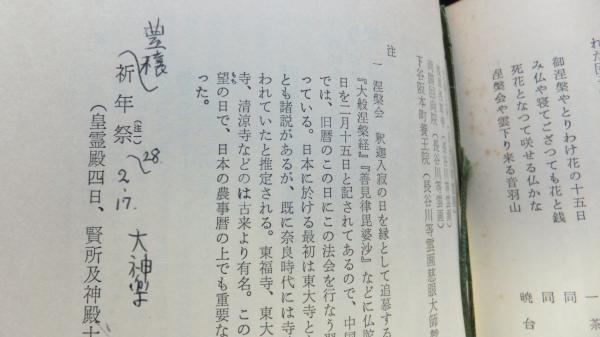 御涅槃やとりわけ花の十五日 一茶
み仏や寝てござつても花と銭 同
死花となつて咲せる仏かな 同
涅槃会や雲下り来る音羽山 暁台
両国回向院（長谷川等雲画）
下谷阪本町養玉院（長谷川等雲画慈眼大師
注
一 涅槃会 釈迦入寂の日を縁として追慕する
『大般涅槃経』『善見律毘婆沙』などに仏陀
日を二月十五日と記されてあるので、中国
では、旧暦のこの日にこの法会を行なう
っている。日本に於ける最初は東大寺と
とも諸説があるが、既に奈良時代には寺
われていたと推定される。東福寺、東大
寺、清涼寺などのは古来より有名。この
望の日で、日本の農事暦の上でも重要な
った。
豊穣
祈年祭 28. 2.17. 大神楽
（皇霊殿四日、賢所及神殿十